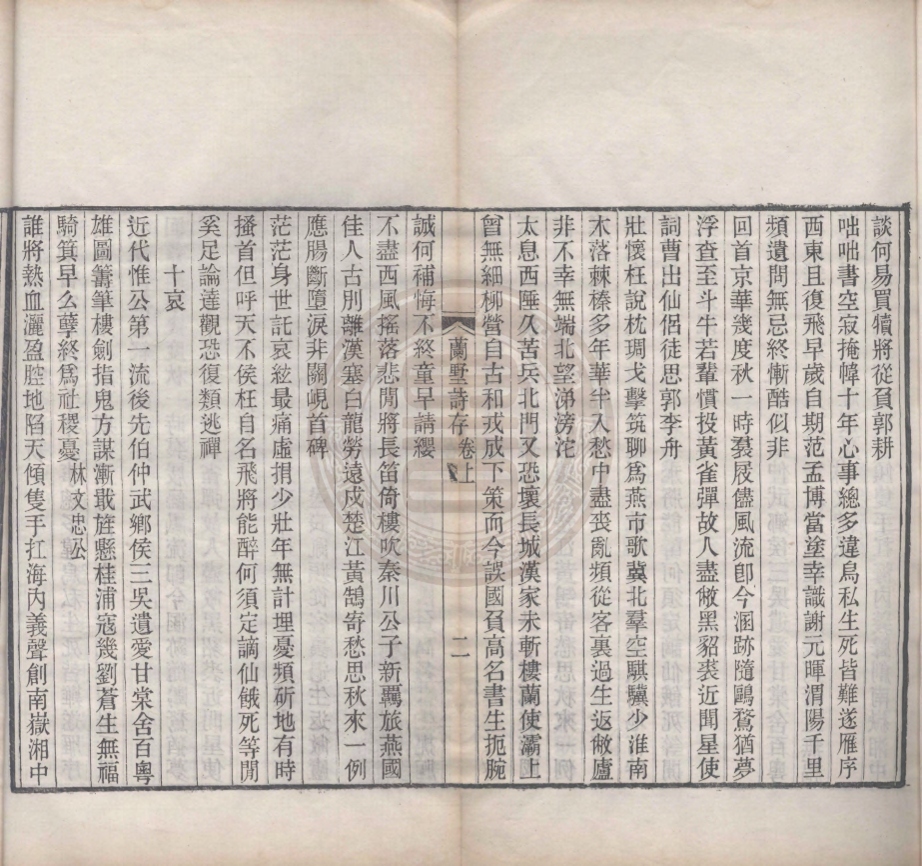 談何易買犢將從負郭耕
咄咄書空寂掩幃十年心事總多違烏私生死皆難遂雁序
西東且復飛早歲自期范孟博當塗幸識謝元暉渭陽千里
頻遺問無忌終慚酷似非
回首京華幾度秋一時裘屐儘風流卽今溷跡隨鷗鶩猶夢
浮查至斗牛若輩慣投黃雀彈故人盡敝黑貂裘近聞星使
詞曹出仙侶徒思郭李舟
壯懷枉說枕琱戈擊筑聊爲燕市歌冀北羣空騏驥少淮南
木落棘榛多年華半入愁中盡喪亂頻從客裏過生返敝廬
非不幸無端北望涕滂沱
太息西陲久苦兵北門又恐壞長城漢家未斬樓蘭使灞上
曾無細柳營自古和戎成下策而今誤國負高名書生扼腕
蘭墅詩存卷上
二
誠何補悔不終童早請纓
不盡西風搖落悲閒將長笛倚樓吹秦川公子新羈旅燕國
佳人古別離漢塞白龍勞遠戍楚江黃鵠寄愁思秋來一例
應腸斷墮淚非關峴首碑
茫茫身世託哀絃最痛虛捐少壯年無計埋憂頻斫地有時
搔首但呼天不侯枉自名飛將能醉何須定謫仙餓死等閒
奚足論達觀恐復類逃禪
十哀
近代惟公第一流後先伯仲武鄉侯三吳遺愛甘棠舍百粵
雄圖籌筆樓劍指鬼方謀漸戢旌懸桂浦寇幾劉蒼生無福
騎箕早么孽終爲社稷憂林文忠公
誰將熱血灑盈腔地陷天傾隻手扛海內義聲創南嶽湘中